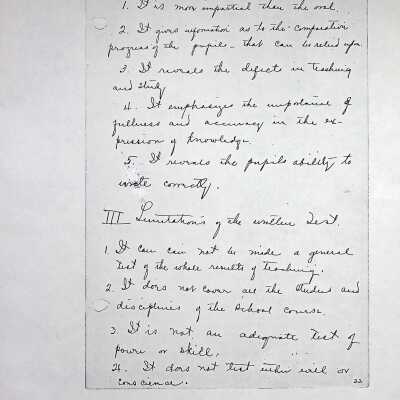 1. It is more impartial than the oral.
2. It gives information as to the comparative
progress of the pupils - that can be relied upon
3. It reveals the defects in teaching
and study
4. It emphasizes the importance of
fullness and accuracy in the ex-
pression of knowledge.
5. It reveals the pupils ability to
write correctly.
III Limitations of the written Test.
1. It can can not be made a general
test of the whole results of teaching.
2. It does not cover all the studies and
disciplines of the school course.
3. It is not an adequate test of
power or skill.
4. It does not test either will or
conscience.
22